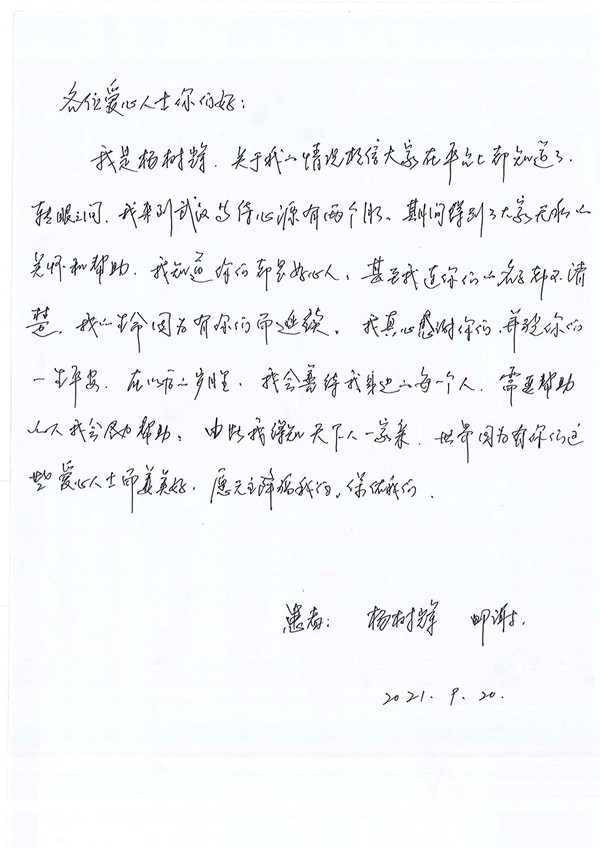 各位爱心人士你们好:
我是杨树辉. 关于我的情况相信大家在平台上都知道了.
转眼之间. 我来到武汉等待心源有两个月. 期间得到了大家无私的
关怀和帮助. 我知道你们都是好心人, 甚至我连你们的名字都不清
楚. 我的生命因为有你们而延续. 我真心感谢你们, 并祝你们
一生平安. 在以后的岁月里. 我会善待我身边的每一个人. 需要帮助
的人我会尽力帮助. 由此我得知天下人一家亲. 世界因为有你们这
些爱心人士而美好. 愿天主降福我们, 保佑我们.
患者: 杨树辉 叩谢.
2021. 9. 20.